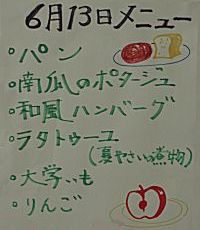 6月13日メニュー
・パン
・南瓜のポタージュ
・和風ハンバーグ
・ラタトゥーユ
(夏やさいの煮物)
・大学いも
・りんご